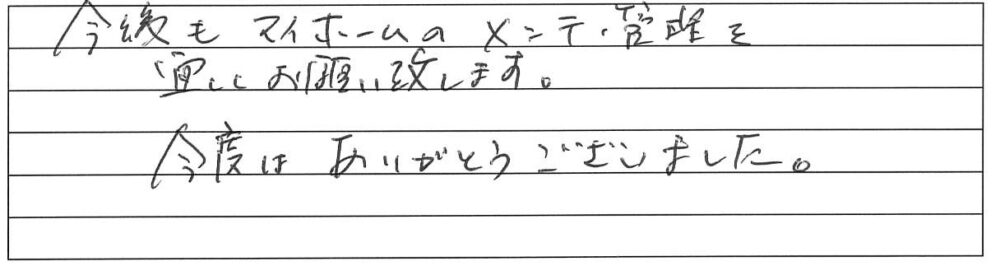 今後も マイホームの メンテ・管理を
宜しく お願い致します。
今度は ありがとうございました。